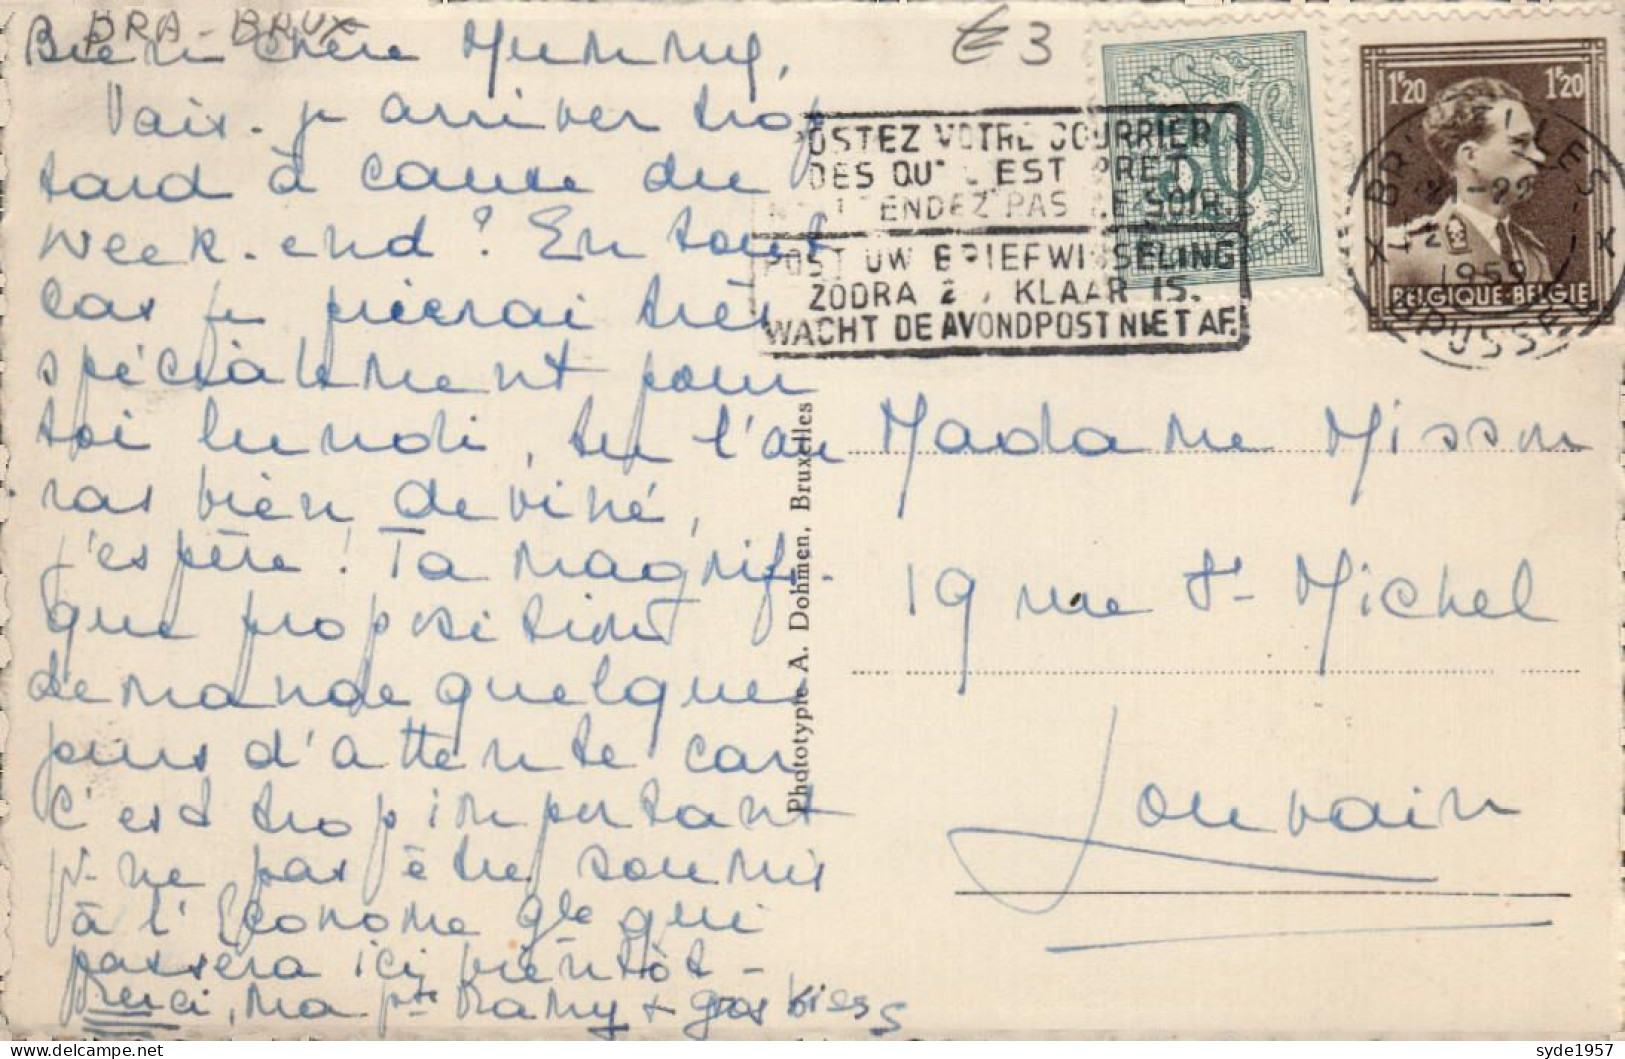 BRA - BRUX
€ 3
Bien chère Mummy,
Vais-je arriver trop
tard à cause du
week-end? En tout
cas je prierai très
spécialement pour
toi lundi, tu l'au
ras bien deviné,
j'espère! Ta magnifi-
que proposition
demande quelques
jours d'attente car
c'est trop important
pr ne pas être soumis
à l'Econome gle qui
passera ici bientôt -
Merci, ma pte Mamy + gros
POSTEZ VOTRE COURRIER
DES QU'IL EST PRET
N'ATTENDEZ PAS LE SOIR.
POST UW BRIEFWISSELING
ZODRA ZIJ KLAAR IS.
WACHT DE AVONDPOST NIET AF.
50
BELGIE
1F20 1F20
BELGIQUE-BELGIE
BRUXELLES
1959
BRUSSEL
Phototypie A. Dohmen, Bruxelles
Madame Misson
19 rue St-Michel
Louvain
syde1957